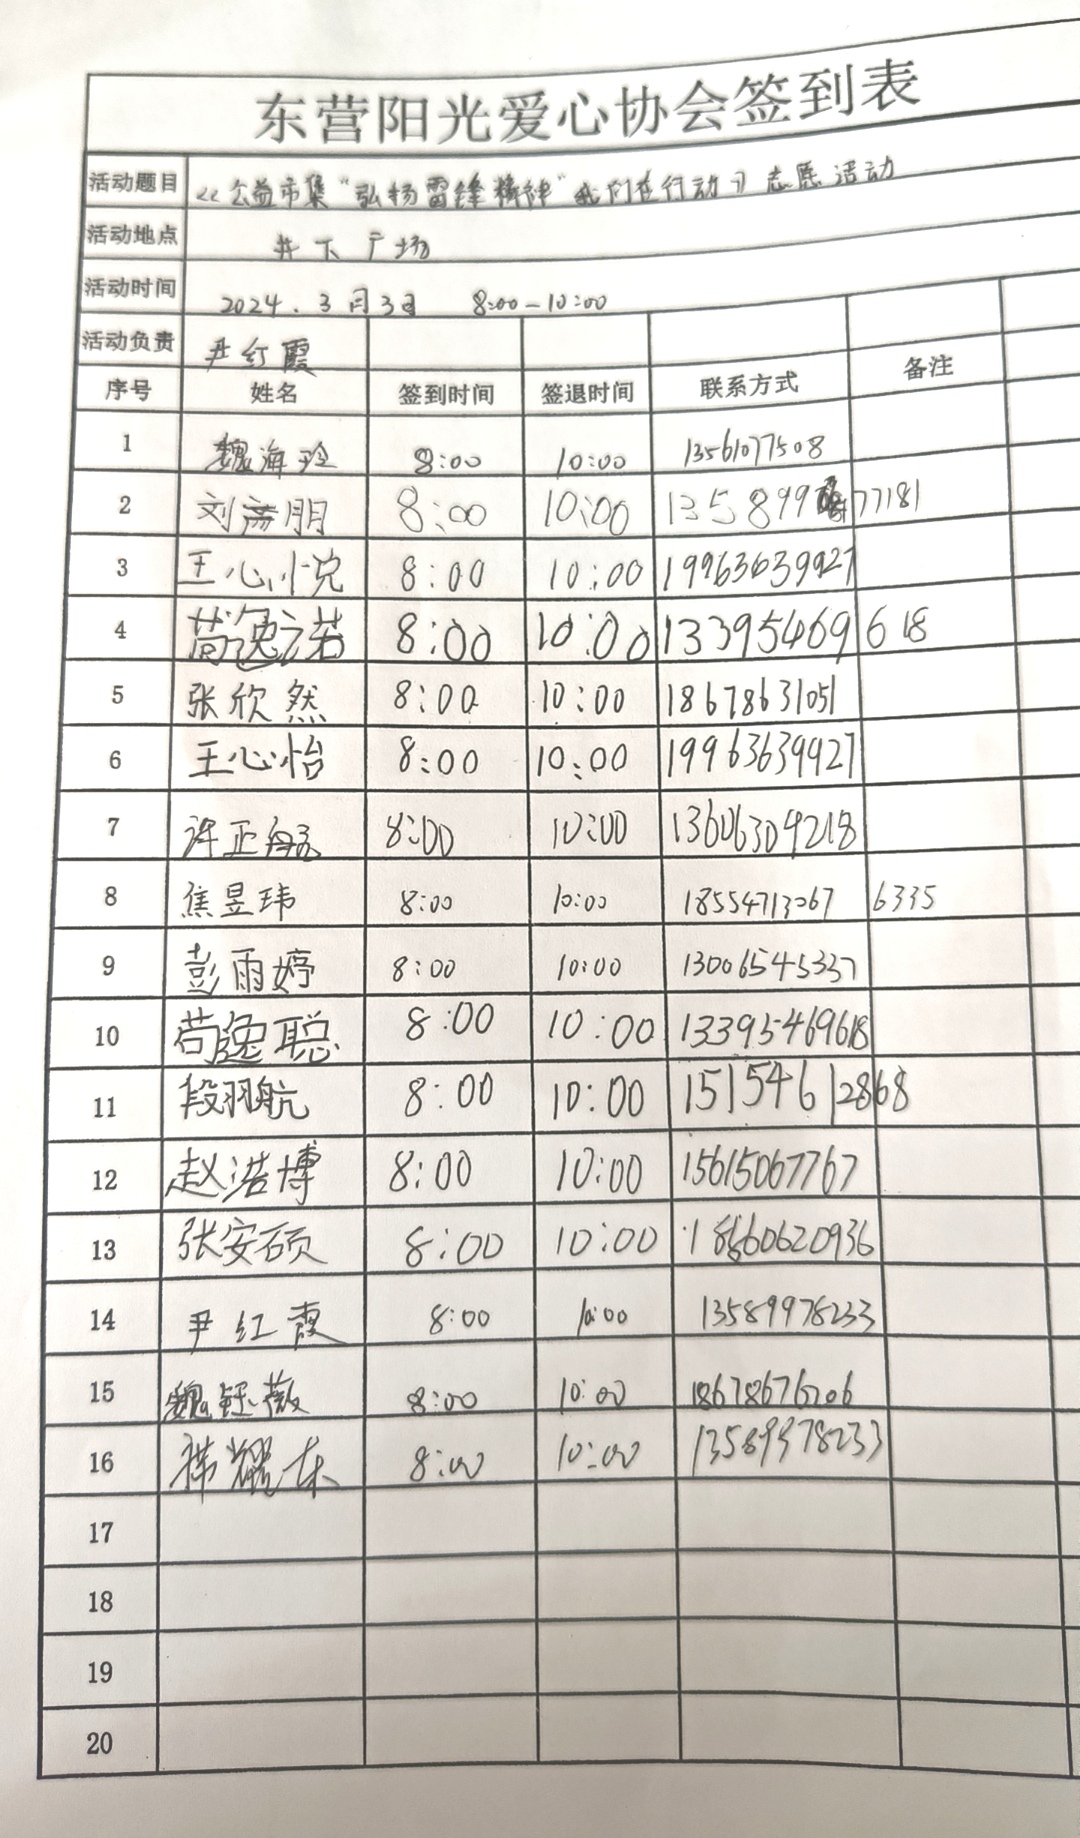 东营阳光爱心协会签到表
活动题目 《公益市集“弘扬雷锋精神”我们在行动》志愿活动
活动地点 井下广场
活动时间 2024.3月3日 8:00-10:00
活动负责 尹红霞
序号 姓名 签到时间 签退时间 联系方式 备注
1 魏海玲 8:00 10:00 13561077508
2 刘 朋 8:00 10:00 135899 77181
3 王心悦 8:00 10:00 19963639927
4 苟逸之若 8:00 10:00 13395469618
5 张欣然 8:00 10:00 18678631051
6 王心怡 8:00 10:00 19963639927
7 许正航 8:00 10:00 13606309218
8 焦昱玮 8:00 10:00 18554713067 6335
9 彭雨婷 8:00 10:00 13006545337
10 苟逸聪 8:00 10:00 13395469618
11 段羽航 8:00 10:00 15154612868
12 赵浩博 8:00 10:00 15615067767
13 张安硕 8:00 10:00 18660620936
14 尹红霞 8:00 10:00 13589978233
15 魏钰薇 8:00 10:00 18678676206
16 耀东 8:00 10:00 13589978233
17
18
19
20